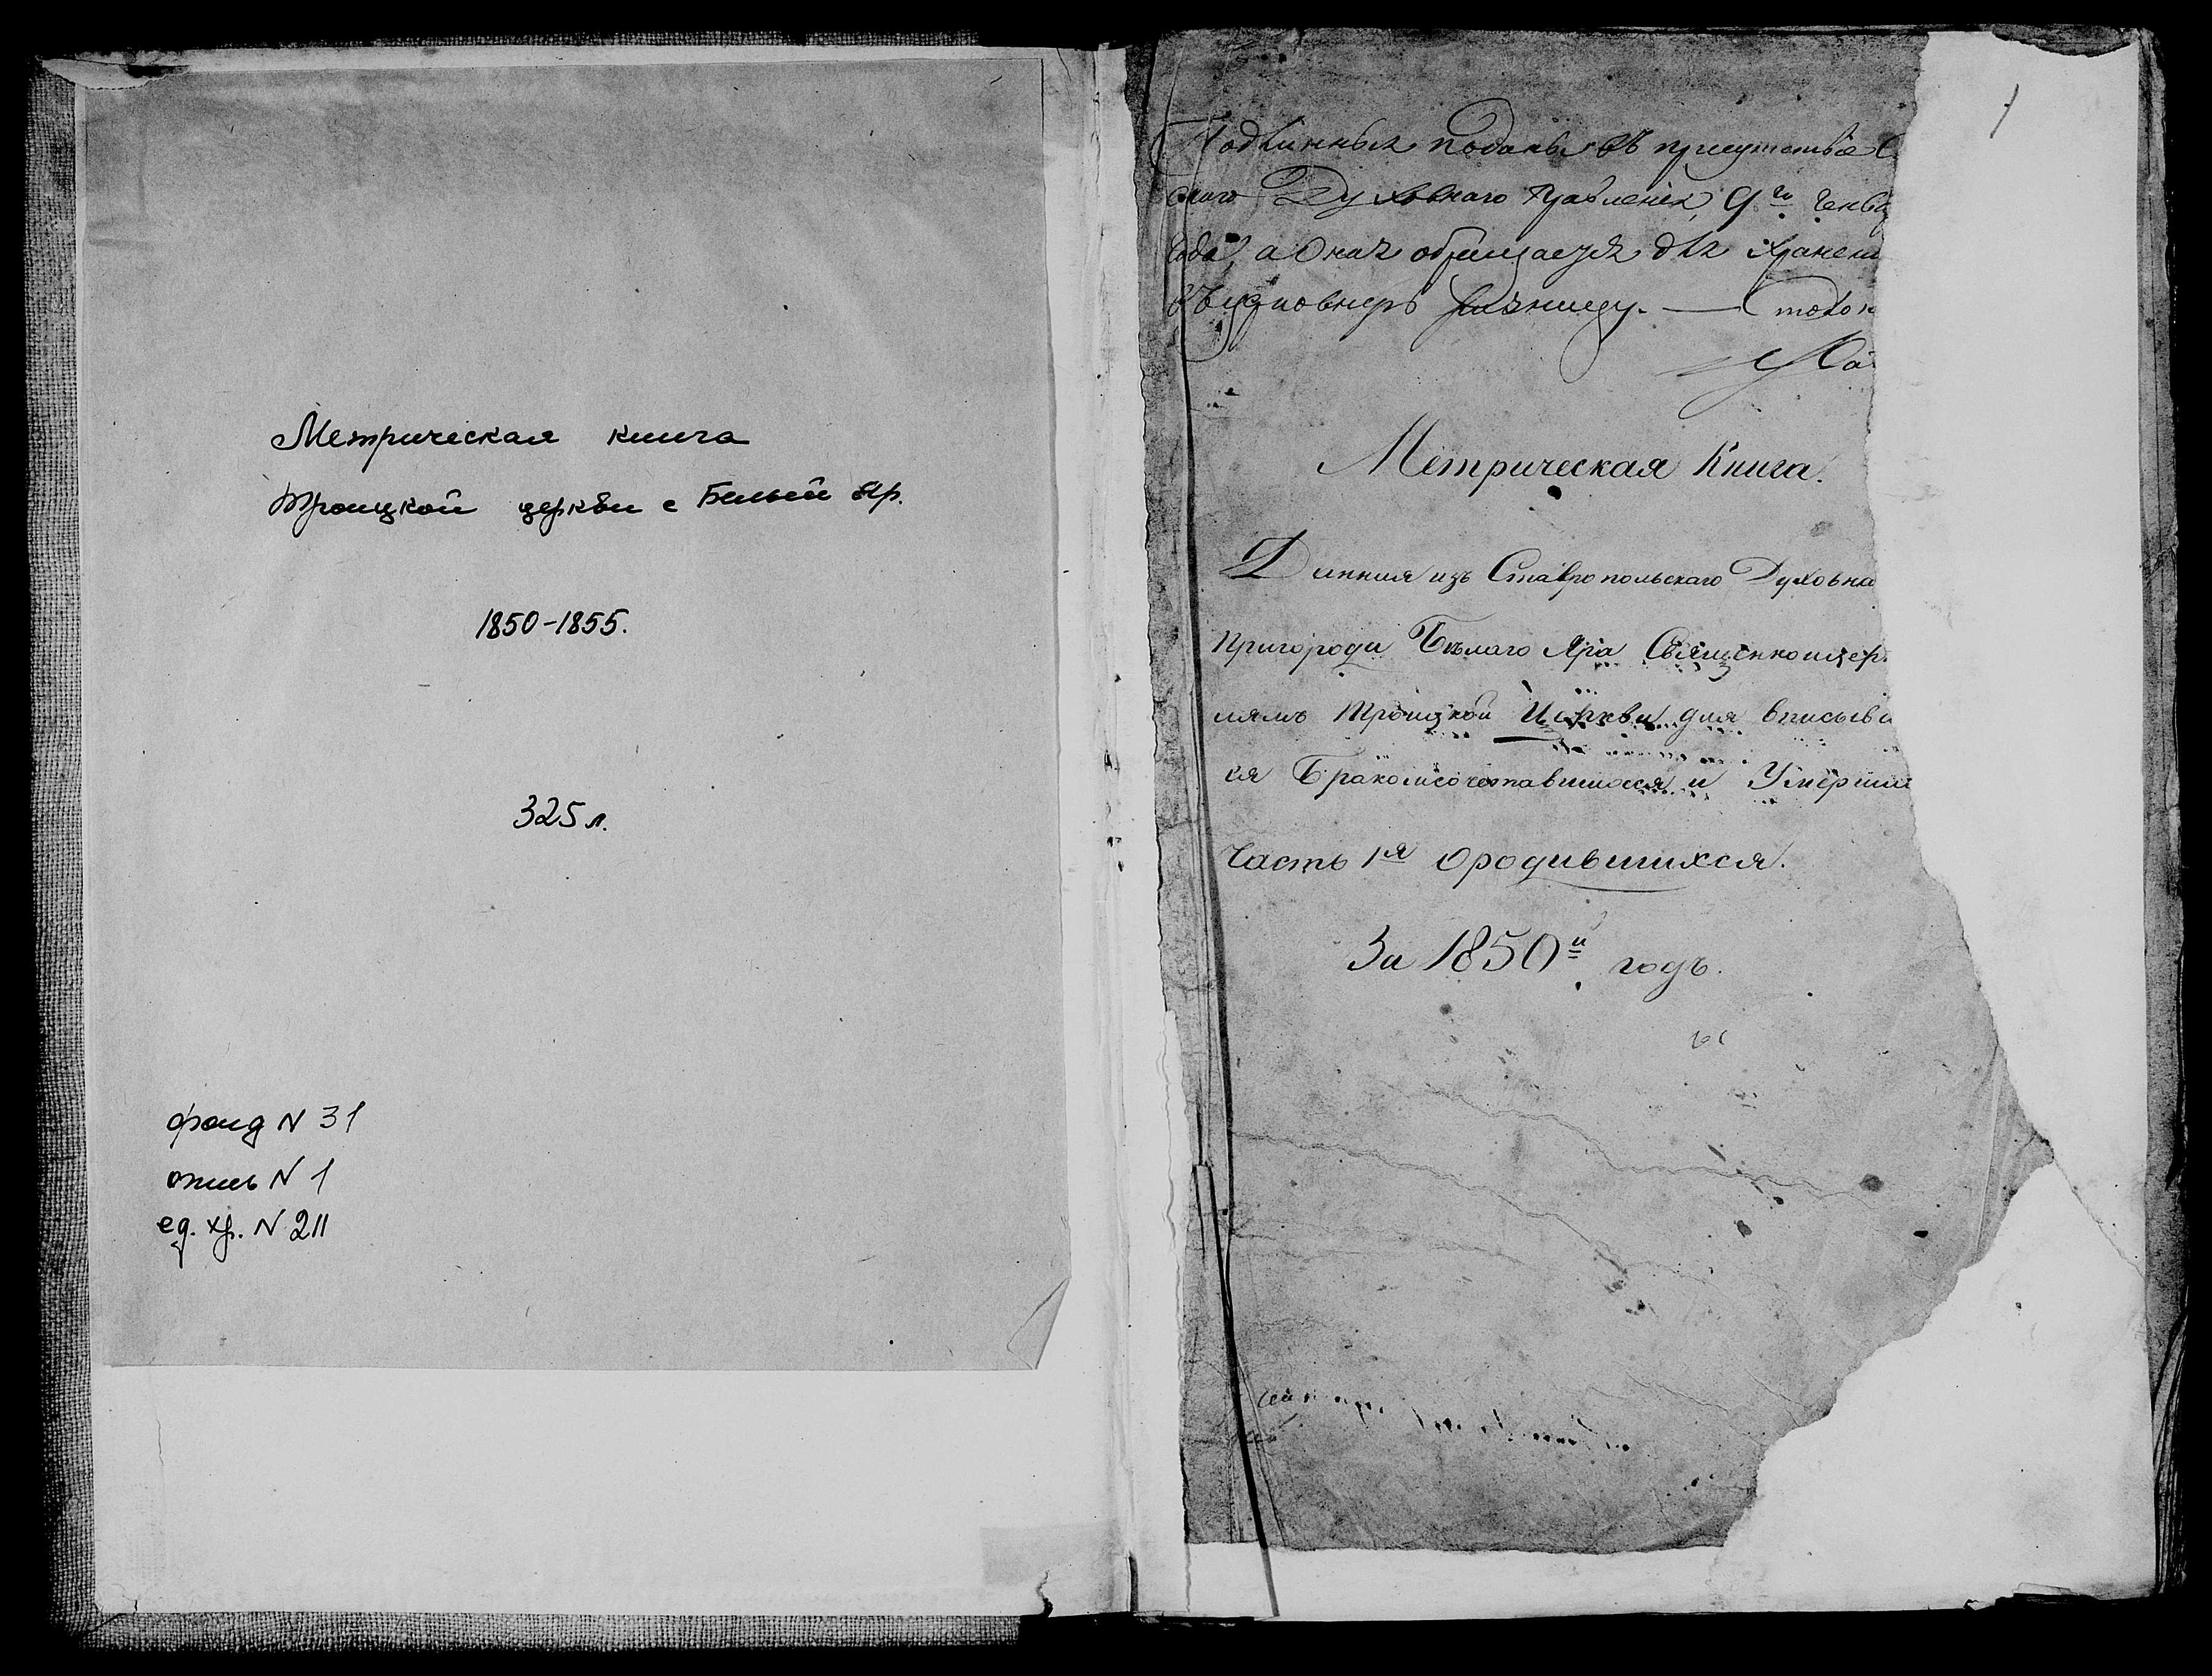 Метрическая книга
Троицкой церкви с Белый Яр.
1850-1855.
325 л.
фонд N 31
опись N 1
ед. хр. N 211
1
Подлинныя поданы въ присутствiе С
скаго Духовнаго Правленiя, 9го Генва
года, а оная обращается для хранен
въ церковную ризницу. —
Метрическая Книга.
Данная изъ Ставропольскаго Духовна
пригорода Бѣлаго Яра Священноцер
лямъ Троицкой Церкви для вписыва
ся Бракомсочетавшихся и Умерши
Часть 1я о родившихся.
За 1850й годъ.